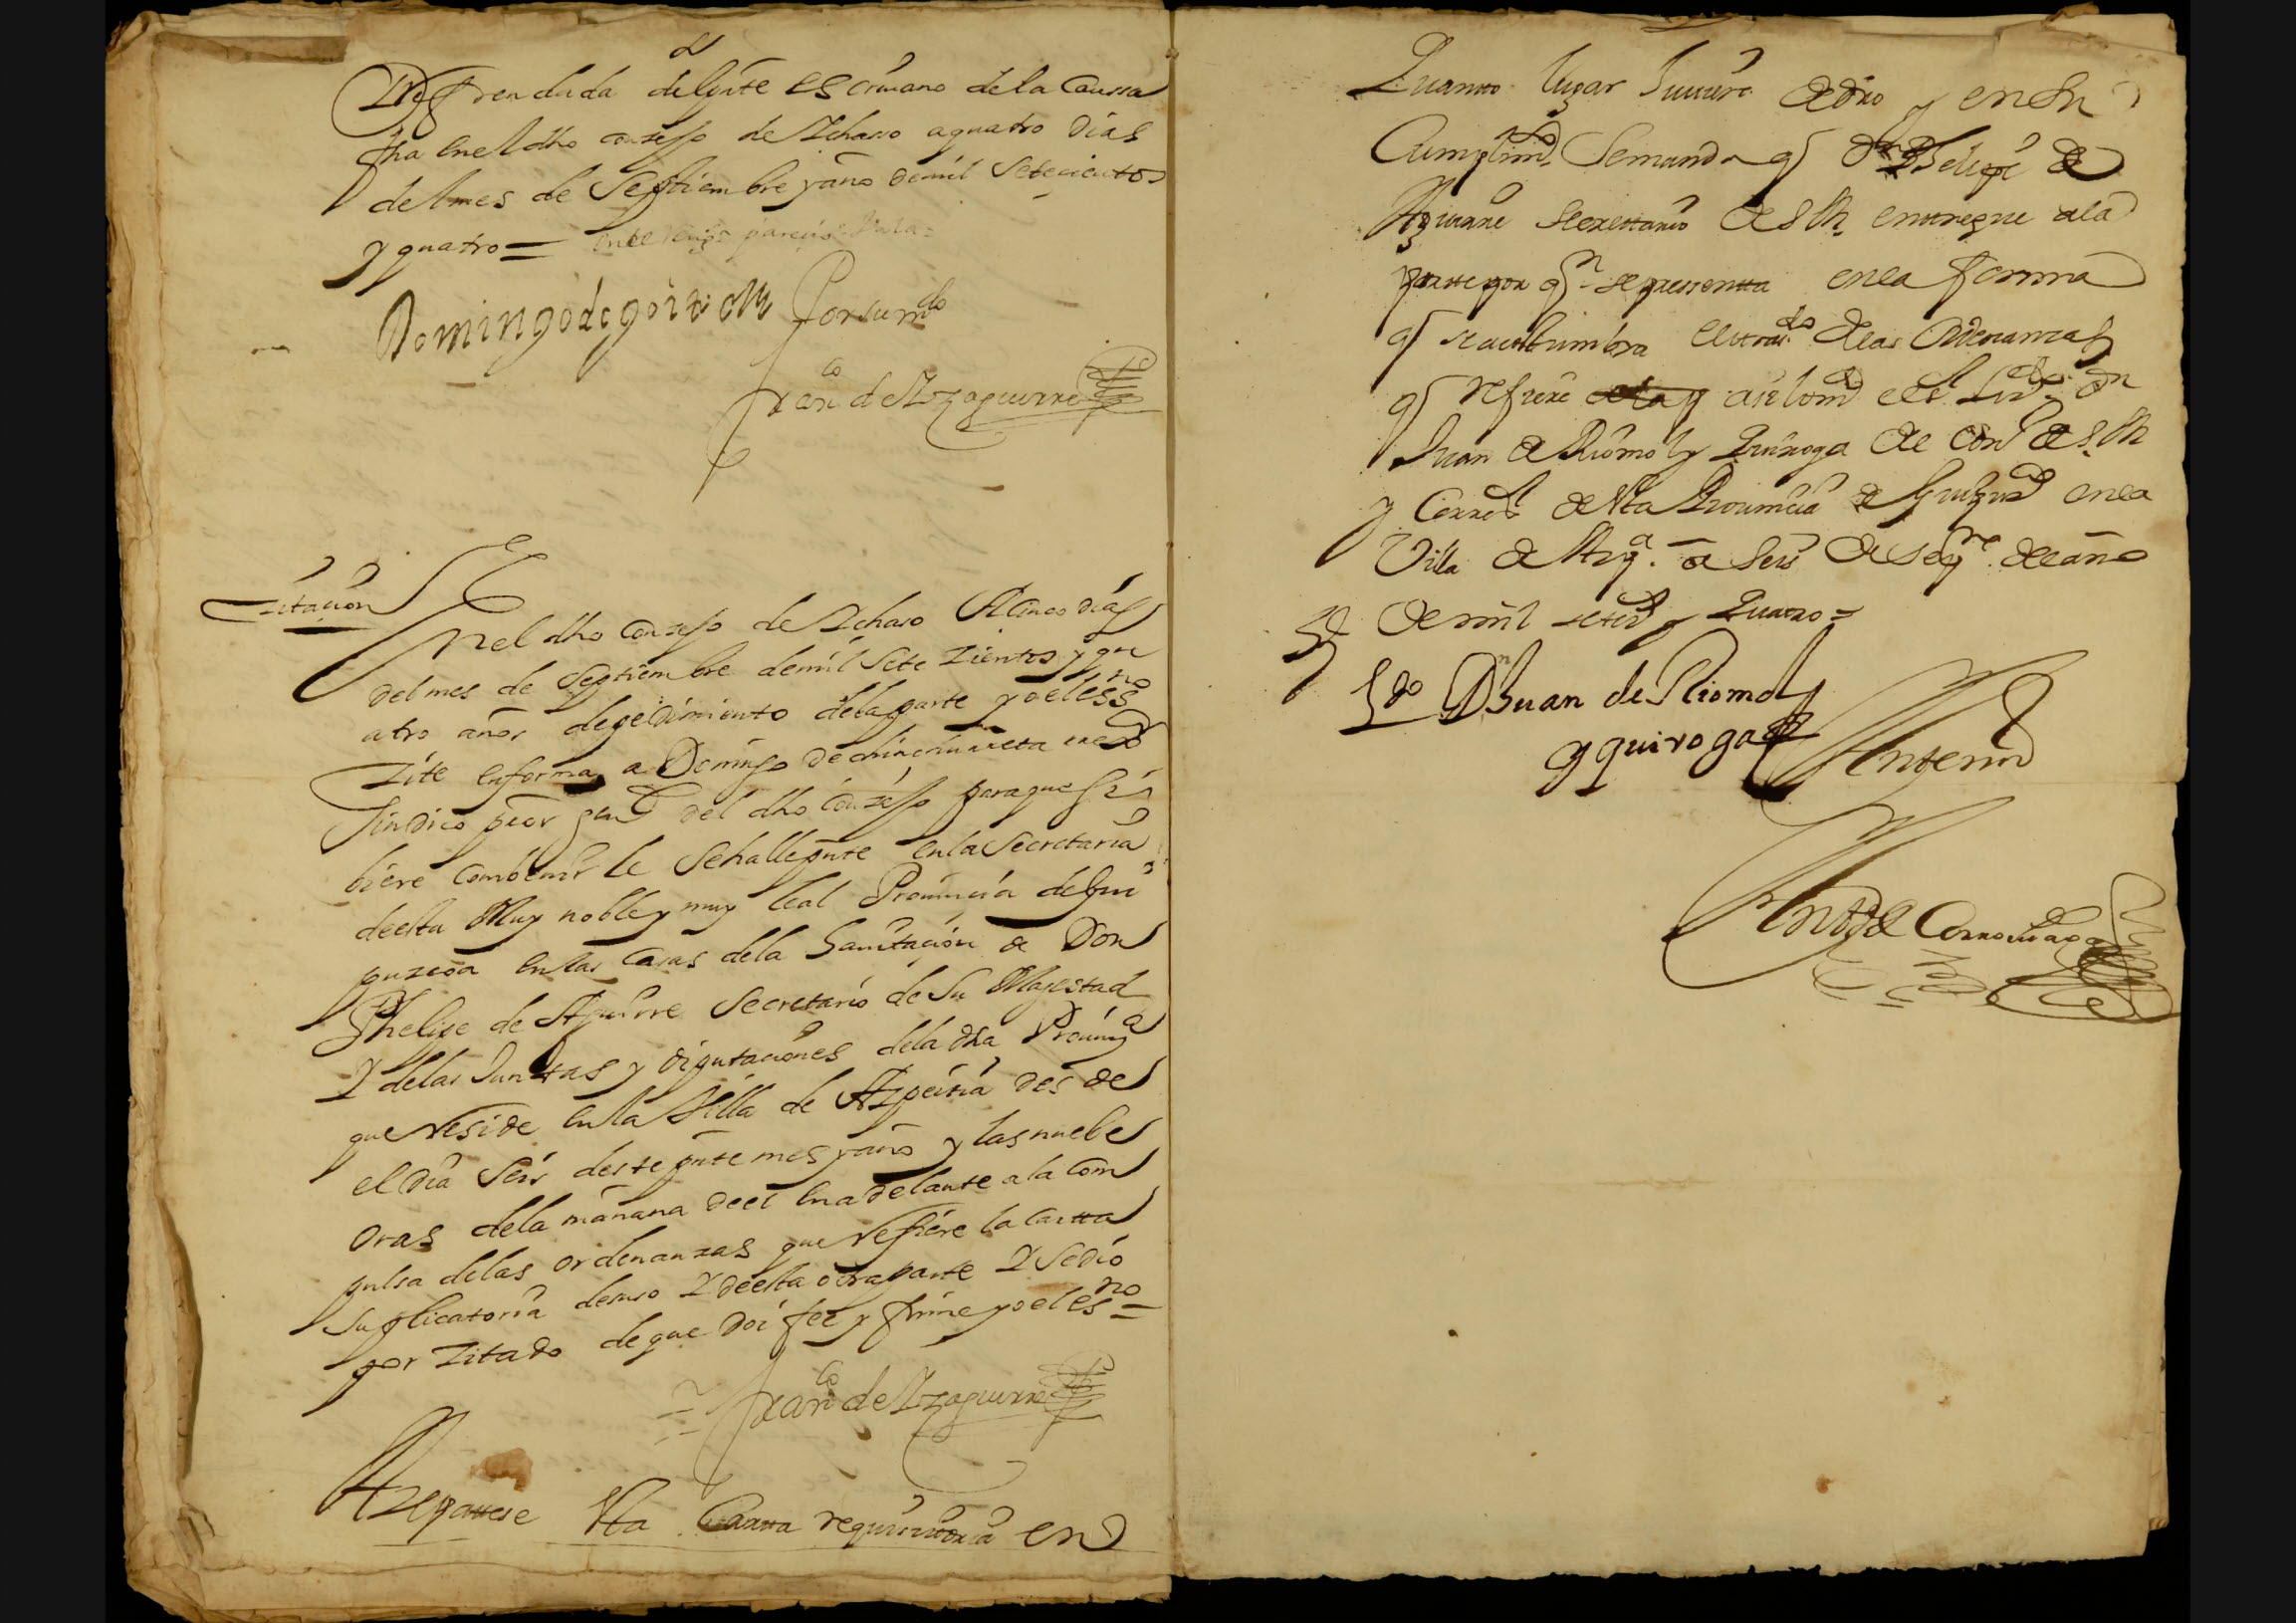 Refrendada del pnte escriuano de la Caussa
fha en el dho conzejo de Ichaso a quatro dias
del mes de Septiembre y año de mil setecientos
y quatro = entre rengs parecio
Domingo de goitia
Por su mdo
Franco de Yzaguirre
Citacion
En el dho conzejo de Ichaso A Cinco dias
del mes de Septiembre de mil sete zientos y qu
atro años de pedimiento de la parte yo el essno
zite en forma a Domingo de
Sindico pror genl del dho Conzejo para que si
biere combenirle se halle pnte en la Secretaria
de esta Muy noble y muy leal Prouincia de Gui
puzcoa en las Casas de la hauitacion de Don
Phelipe de Aguirre Secretario de Su Magestad
Y de las Juntas y diputaciones de la dha Prouinª
que reside en la Villa de Azpeitia desde
el dia Seis deste pnte mes y año y las nuebe
oras de la mañana de el en adelante a la Com
pulsa de las ordenanzas que refiere la Cartta
suplicatoria de suso Y de esta otra parte Y se dio
por zitado de que doi fee y firme yo el esno =
Franco de Yzaguirre
Azepttasse esta Cartta requisitoria en
Quantto lugar huuiere de dro y en su
Cumplimto se manda q Dn Phelipe de
Aguirre Secrettario de S M. enttregue a la
partte por qn se pressentta en la forma
q se acostumbra el trasdo de las Ordenanzas
q refiere assi lo mdo el Sr Lizdo Dn
Juan de Riomol y Quiroga de el Conº de S M
y Corregr de esta Prouincia de Guipuzª en la
Villa de Azpª a seis de sepre de el año
de mil setezs y Quatro =
Ldo Dn Juan de Riomol
y quiroga
Ante mi
Antº de Corrochagaª